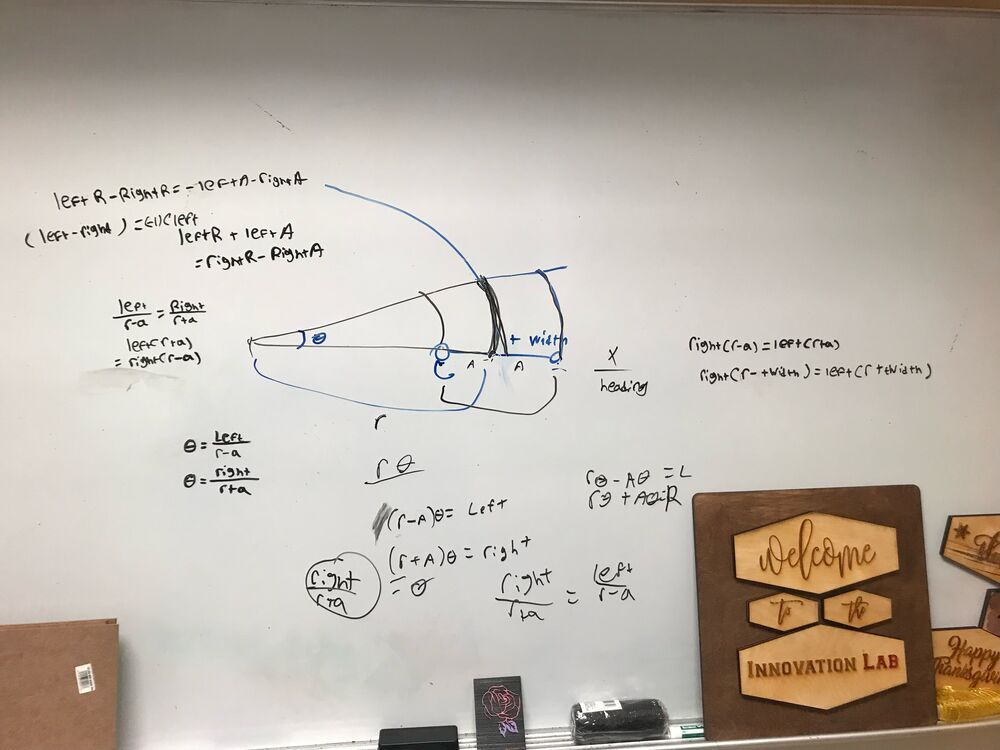 left R - Right R = - left A - right A
(left - right) = (-1)(left
left R + left A
= right R - Right A
left/r-a = Right/r+a
left(r+a)
= right(r-a)
θ
+ width
A A
x/heading
right(r-a) = left(r+a)
right(r-+width) = left(r++width)
r
θ = Left/r-a
θ = right/r+a
rθ
rθ - Aθ = L
rθ + Aθ = R
(r-A)θ = Left
(r+A)θ = right
right/r+a = θ
right/r+a = left/r-a
welcome
to the
INNOVATION LAB
Happy
Thanksgiving